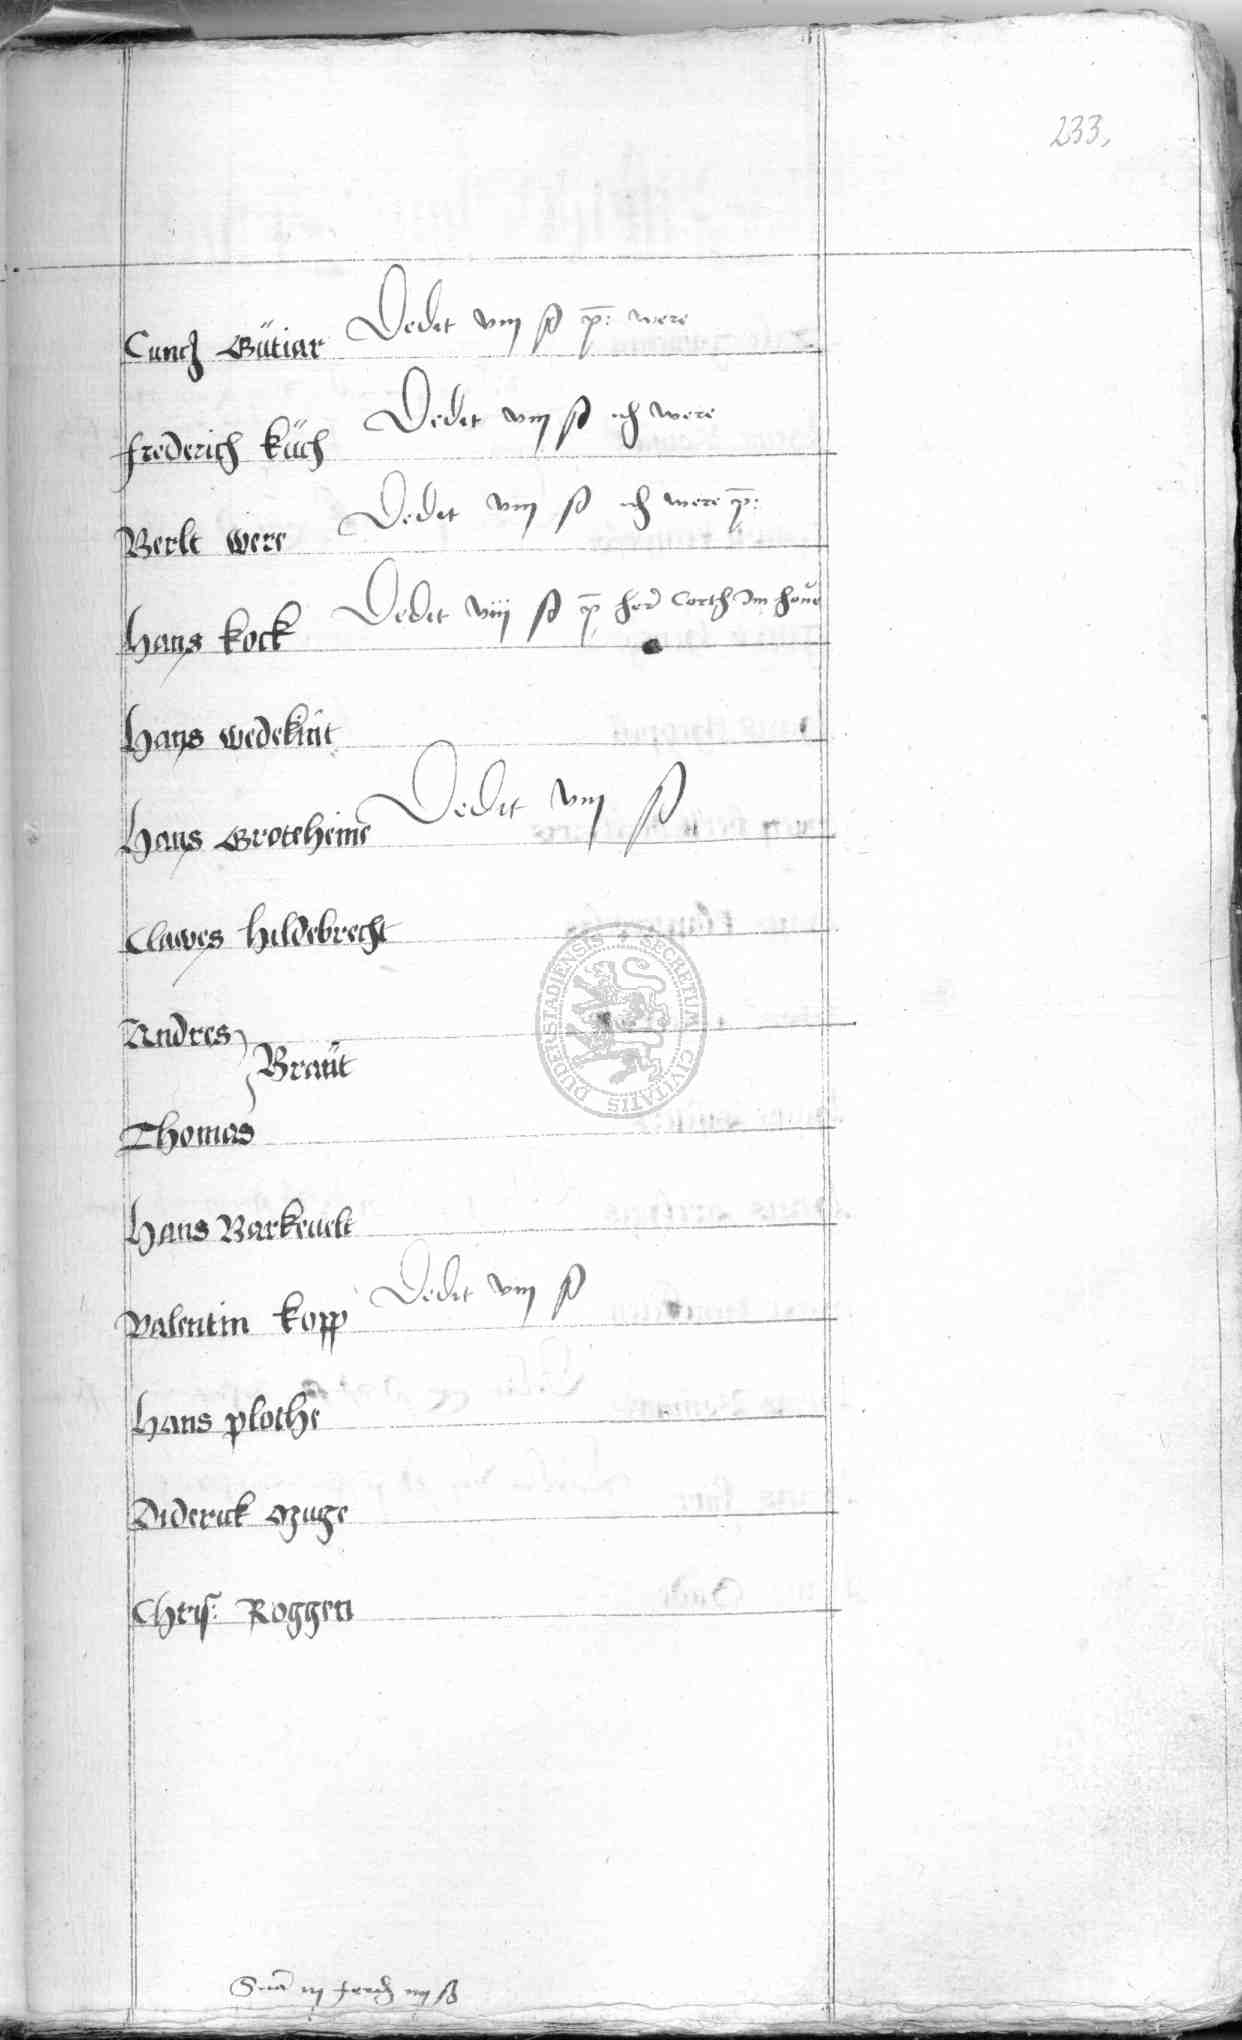 233.
Cuncz Gütiar Dedit viij ß p: were
frederich küch Dedit viij ß ich were
Berlt were Dedit viij ß ich were p:
Hans kock Dedit viij ß p her Corth Im houe
Hans wedekint
Hans Groteheine Dedit viij ß
Clawes hildebrecht
Andres
Braüt
Thomas
Hans Barkeuelt
Valentin kopp Dedit viij ß
Hans plothe
Diderick
Chris: Roggen
Suma iij ferd iiij ß
SECRETUM CIVITATIS DUDERSTADIENSIS